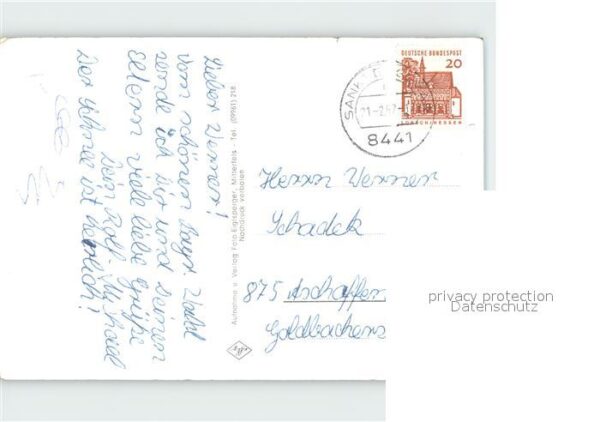 Lieber Werner!
vom schönen Bayr. Wald
sende ich Dir und Deinen
Eltern viele liebe Grüße
Dein Rolf
Der Schnee ist herrlich!
Aufnahme u. Verlag Foto Eiglsperger, Mitterfels - Tel. (09961) 218
Nachdruck verboten
DEUTSCHE BUNDESPOST
20
LORSCH/HESSEN
SANKT
21.-2.67
8441
Herrn Werner
Schadek
875 Aschaffen
Goldbacherst
privacy protection
Datenschutz